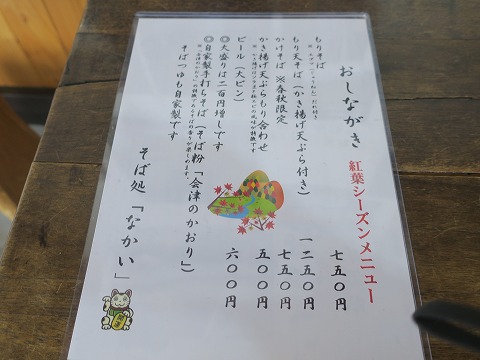 おしながき 紅葉シーズンメニュー
もりそば 七五〇円
もり天そば(かき揚げ天ぷら付き) 一二五〇円
かけそば ※春秋限定 七五〇円
かき揚げ天ぷらもり合わせ 五〇〇円
ビール(大ビン) 六〇〇円
◎大盛りは二百円増しです
◎自家製手打ちそば(そば粉「会津のかおり」)
そばつゆも自家製です
そば処「なかい」